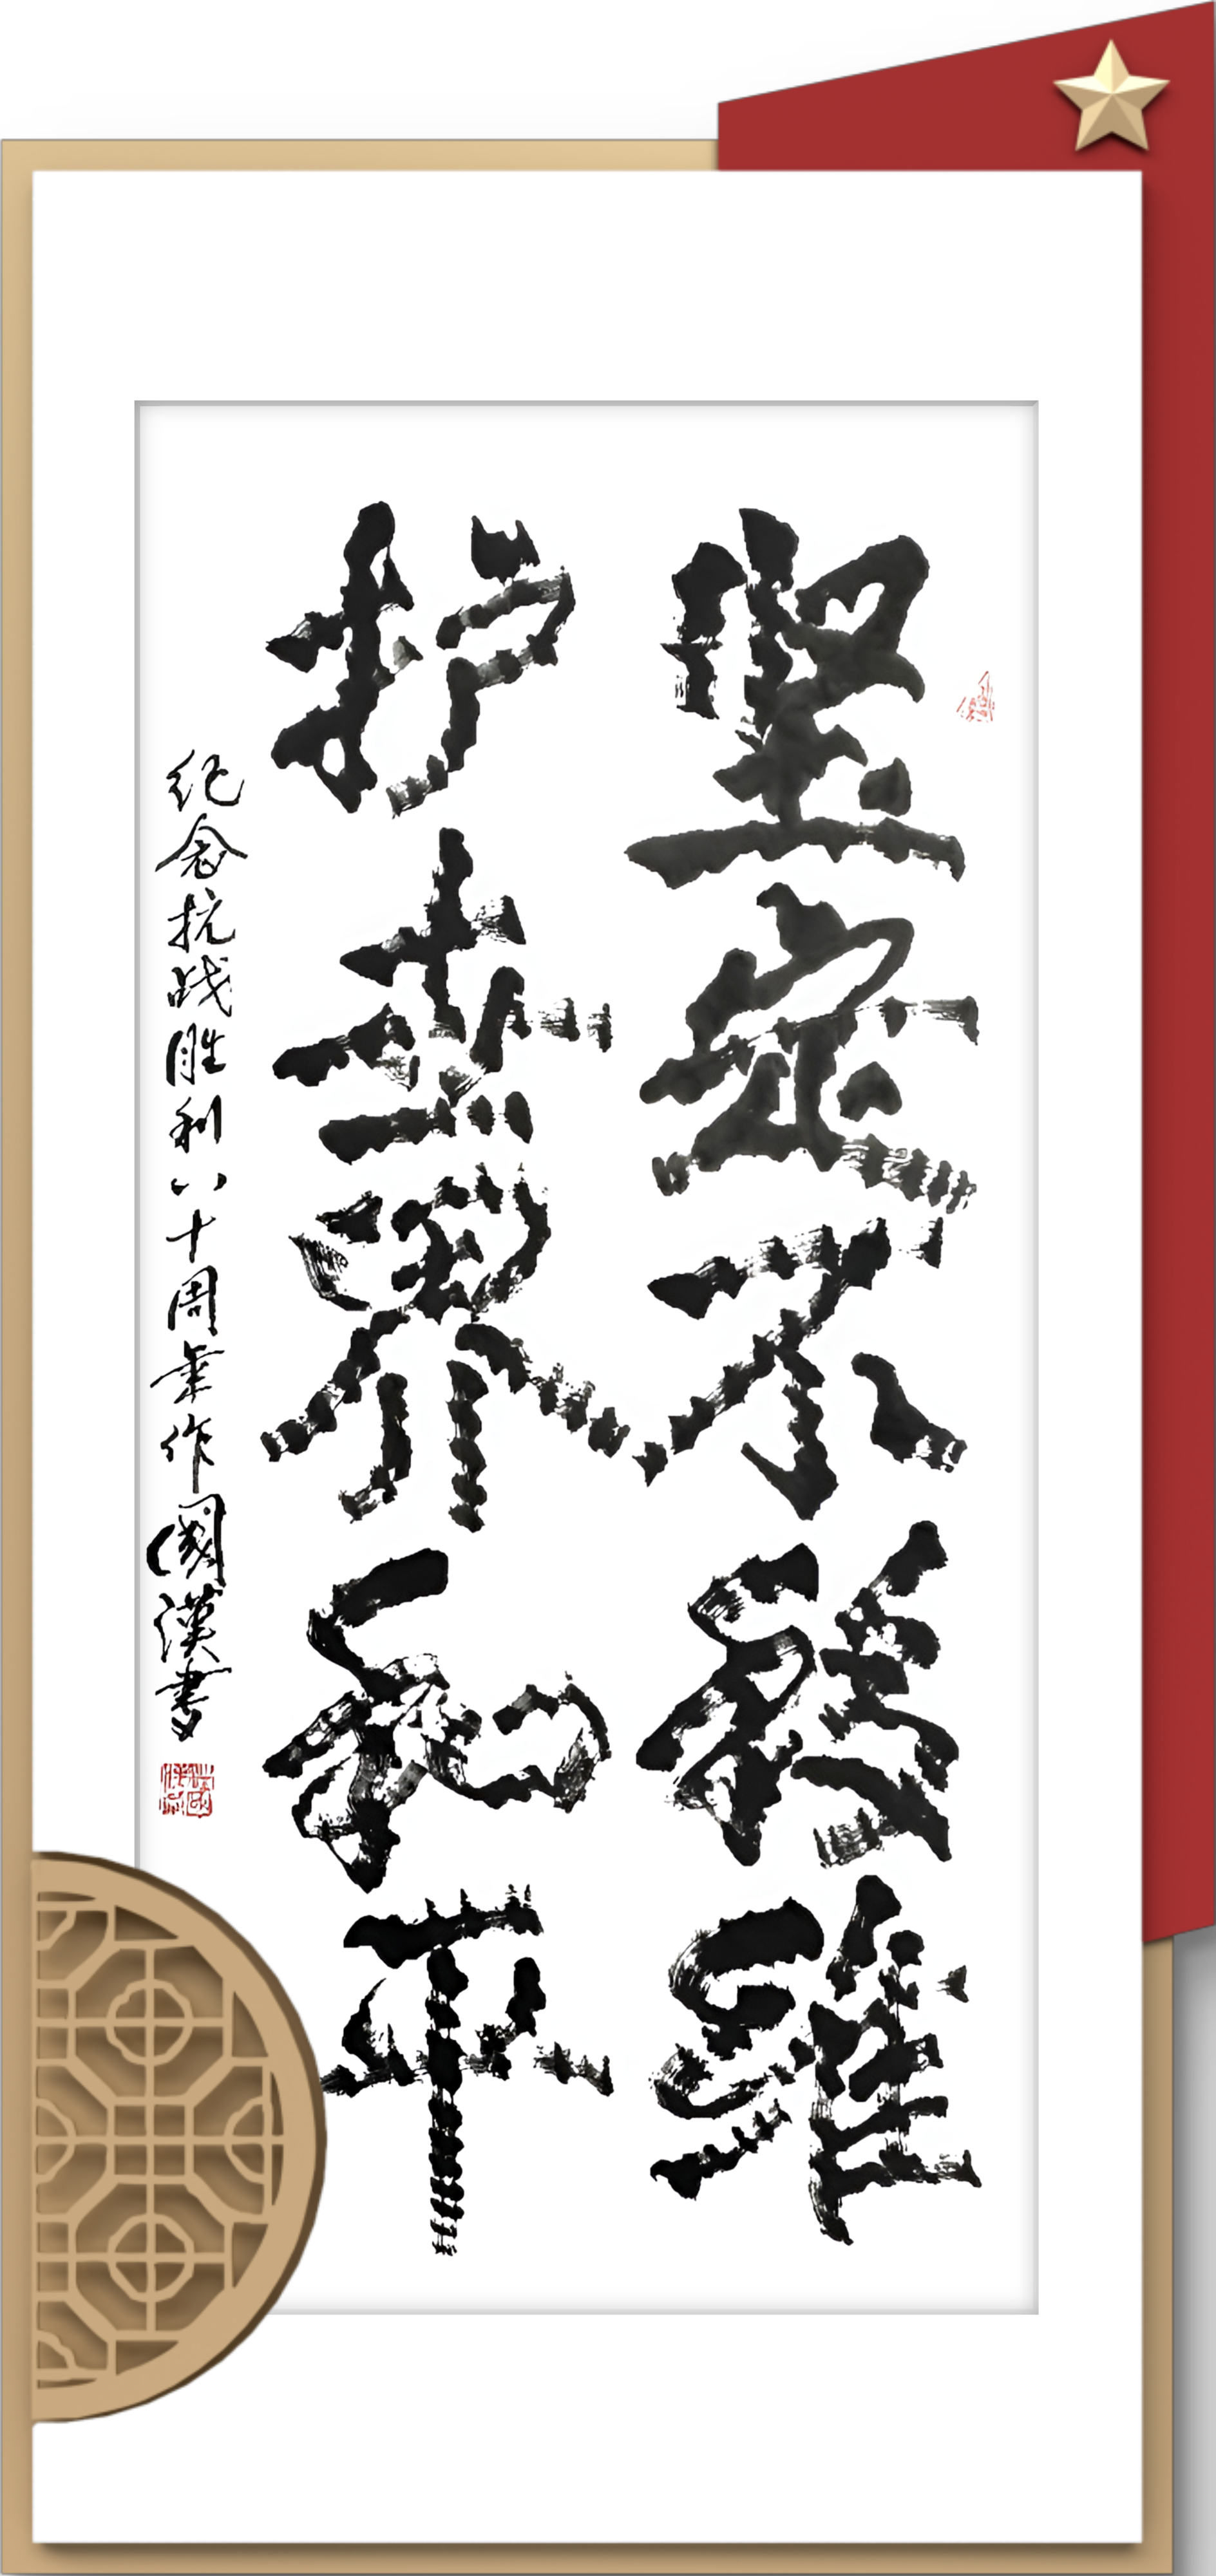 坚定不移维
护世界和平
纪念抗战胜利八十周年作國漢書